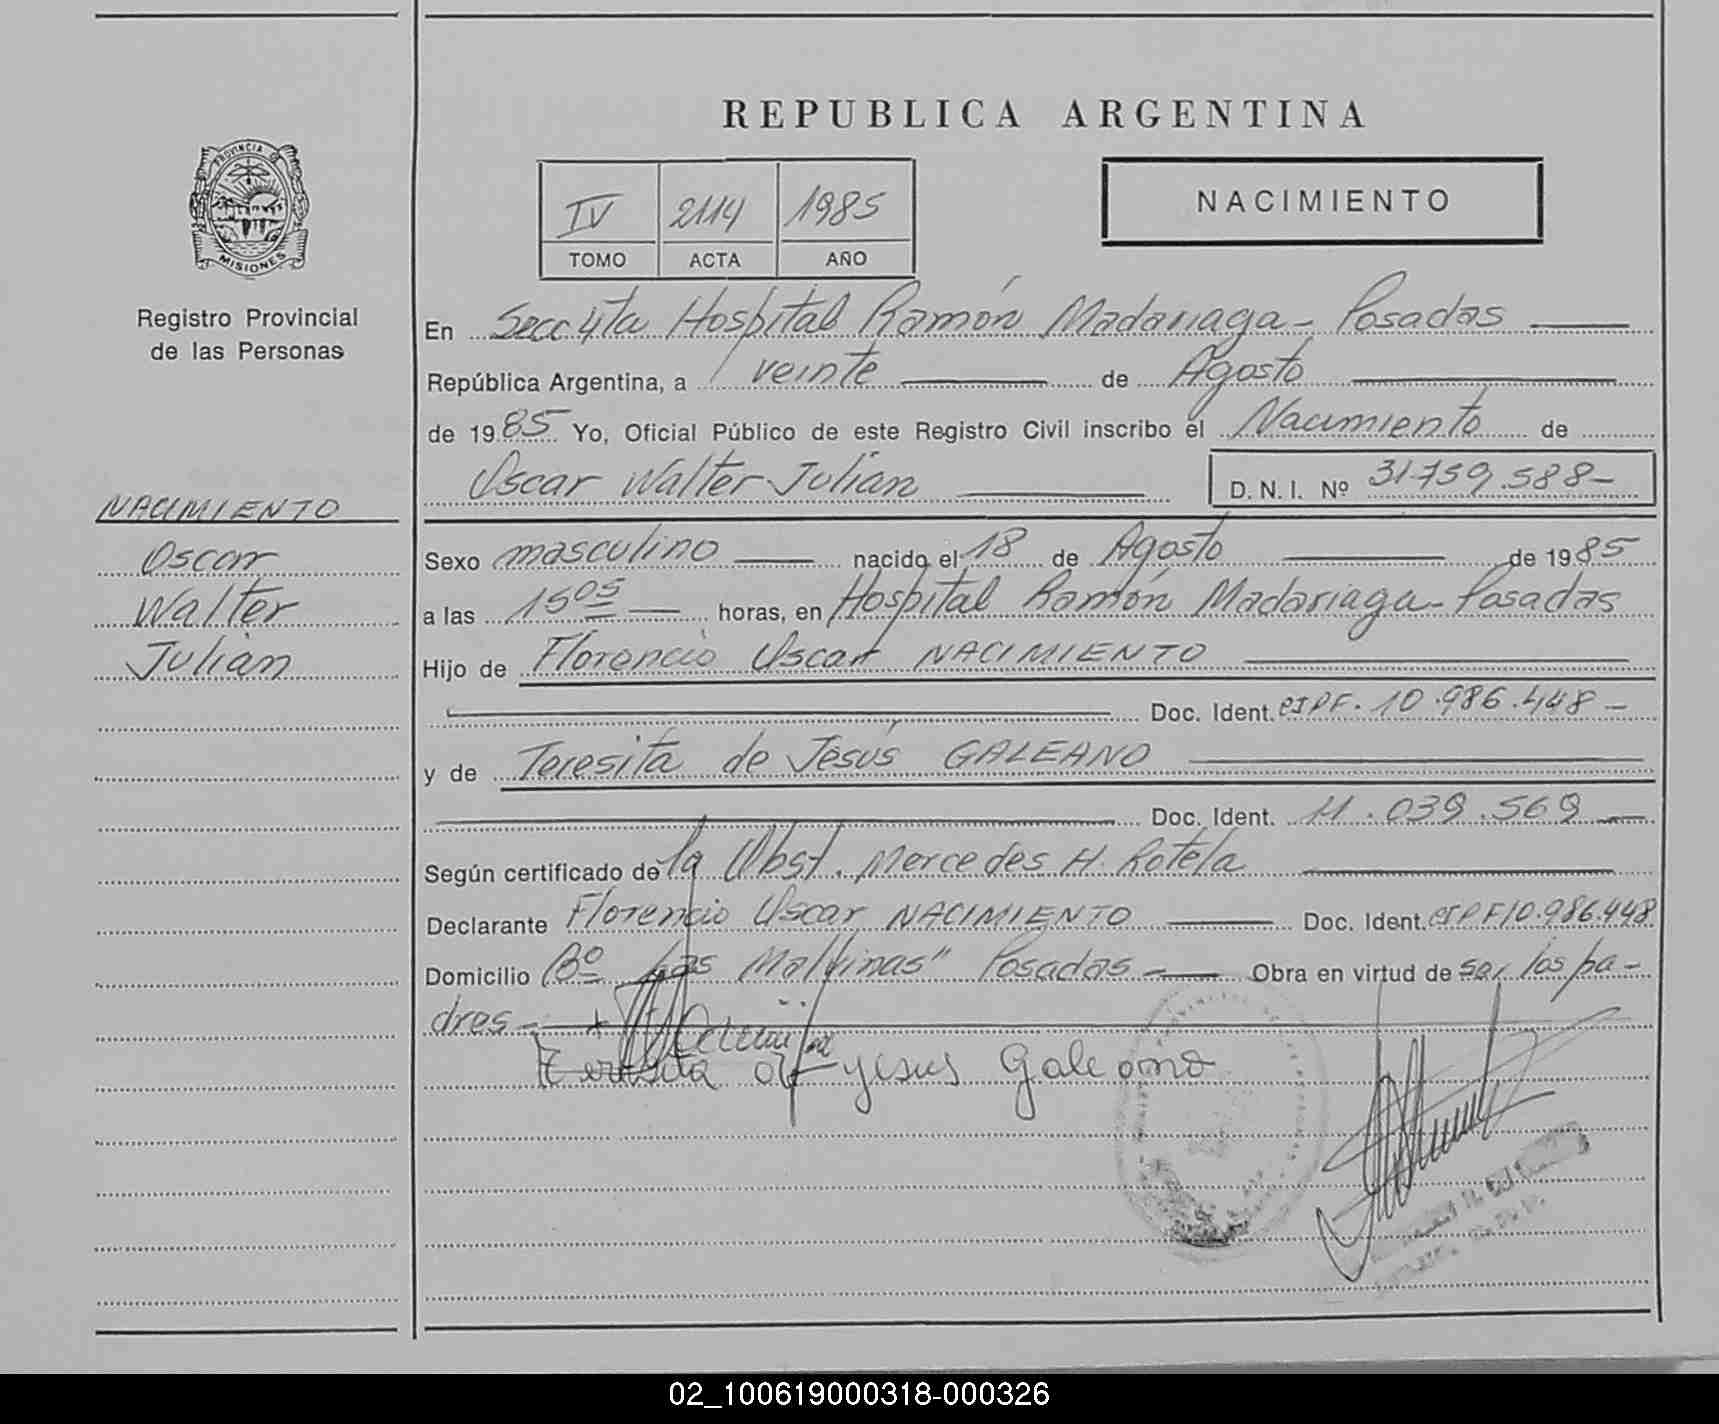 REPUBLICA ARGENTINA
PROVINCIA DE
MISIONES
Registro Provincial
de las Personas
IV 2114 1985
TOMO ACTA AÑO
NACIMIENTO
En Secc 4ta Hospital Ramón Madariaga - Posadas
República Argentina, a veinte de Agosto
de 1985 Yo, Oficial Público de este Registro Civil inscribo el Nacimiento de
Oscar Walter Julián D. N. I. Nº 31.759.588-
NACIMIENTO
Oscar
Walter
Julián
Sexo masculino nacido el 18 de Agosto de 1985
a las 15 05 horas, en Hospital Ramón Madariaga - Posadas
Hijo de Florencio Oscar NACIMIENTO
Doc. Ident. CIPF. 10.986.448 -
y de Teresita de Jesús GALEANO
Doc. Ident. 11.039.569
Según certificado de la Obst. Mercedes H. Rotela
Declarante Florencio Oscar NACIMIENTO Doc. Ident. CIPF 10.986.448
Domicilio Bº "Las Malvinas" Posadas - Obra en virtud de ser los pa-
dres -
Teresita de yesus Galeano
02_100619000318-000326